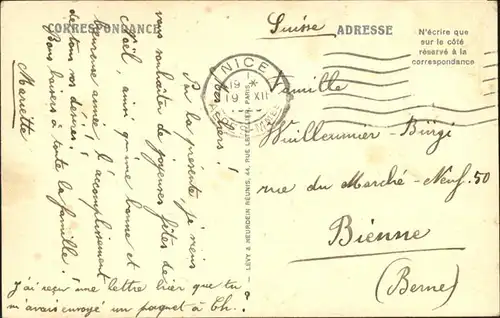 CORRESPONDANCE
ADRESSE
N'écrire que
sur le côté
réservé à la
correspondance
NICE
19 1
19 XII
ALPES-MARIT
Bien chers!
Par la présente, je viens
vous souhaiter de joyeuses fêtes de
Noël, ainsi qu'une bonne et
heureuse année, l'accomplissement
de tous vos désirs!
Bons baisers à toute la famille!
Mariette
J'ai reçu une lettre hier que tu
m'avais envoyé un paquet à Th.
LÉVY & NEURDEIN RÉUNIS, 44, RUE LETELLIER, PARIS
Suisse
Famille
Wuilleumier-Bürgi
rue du Marché-Neuf. 50
Bienne
(Berne)